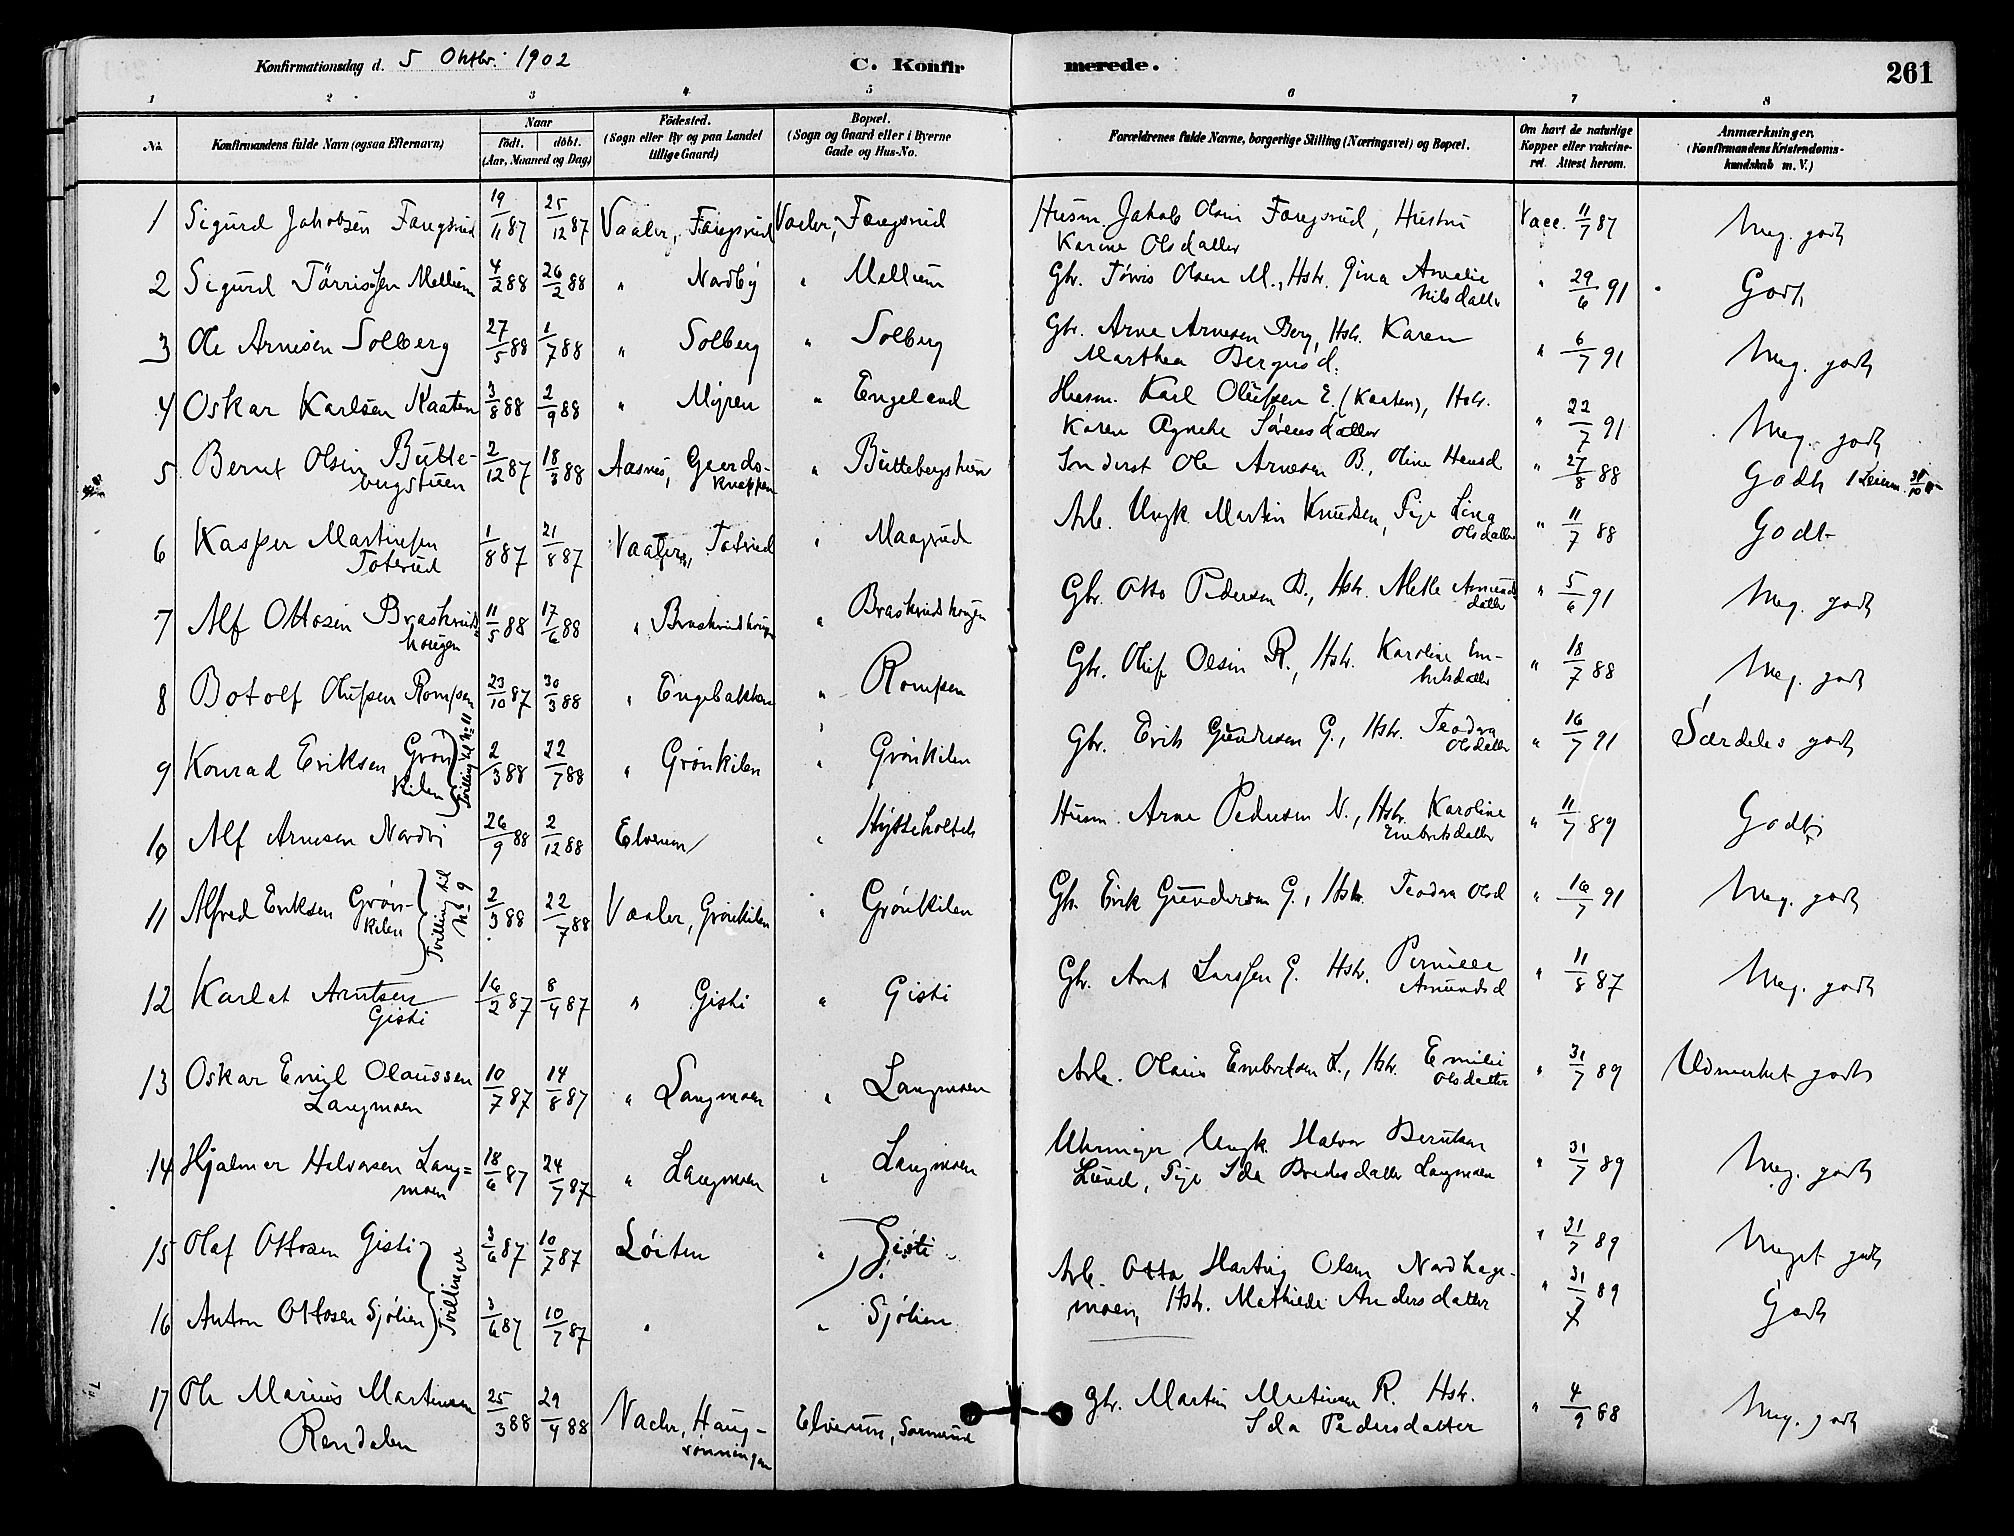 Konfirmationsdag d. 5 Oktbr. 1902
C. Konfirmerede.
261
1 2 3 4 5 6 7 8
No.
Konfirmandens fulde Navn (ogsaa Efternavn)
Naar
født. døbt.
(Aar, Maaned og Dag)
Fødested.
(Sogn eller By og paa Landet
tillige Gaard)
Bopæl.
(Sogn og Gaard eller i Byerne
Gade og Hus-No.
Forældrenes fulde Navne, borgerlige Stilling (Næringsvei) og Bopæl.
Om havt de naturlige
Kopper eller vakcine-
ret. Attest herom.
Anmærkninger.
(Konfirmandens Kristendoms-
kundskab m. V.)
1 Sigurd Jakobsen Fangsrud 19/11 87 25/12 87 Vaaler, Fangsrud Vaaler, Fangsrud Husm. Jakob Olsen Fangsrud, Hustru Vacc. 11/7 87 Meg. godt
Karine Olsdatter
2 Sigurd Tørrissen Mellum 4/2 88 26/2 88 " Nordby " Mellum Gbr. Tørris Olsen M., Hstr. Gina Amalie " 29/6 91 Godt
Nilsdatter
3 Ole Arnesen Solberg 27/5 88 1/7 88 " Solberg " Solberg Gbr. Arne Arnesen Berg, Hstr. Karen " 6/7 91 Meg. godt
Marthea Bergersd.
4 Oskar Karlsen Kaaten 3/8 88 2/9 88 " Myren " Engeland Husm. Karl Olufsen E. (Kaaten), Hstr. " 22/7 91 Meg. godt
Karen Agnethe Sørensdatter
5 Bernt Olsen Butte- 2/12 87 18/3 88 Aasnes, Gaards- " Buttebergstuen Inderst Ole Arnesen B., Oline Hansd " 27/8 88 Godt
bergstuen knappen
6 Kasper Martinsen 1/8 87 21/8 87 Vaaler, Toterud " Maagrud Arb. Ungk. Martin Knudsen, Pige Lina " 11/7 88 Godt
Toterud Olsdatter
7 Alf Ottosen Braskerud- 11/5 88 17/6 88 " Braskerudhougen " Braskerudhougen Gbr. Otto Pedersen B., Hstr. Mette Amunds- " 5/6 91 Meg. godt
hougen datter
8 Botolf Olufsen Rompen 23/10 87 30/3 88 " Engebakken " Rompen Gbr. Oluf Olsen R., Hstr. Karoline Em- " 18/7 88 Meg. godt
9 Konrad Eriksen Grøn- 2/3 88 22/7 88 " Grønkilen " Grønkilen Gbr. Erik Gundersen G., Hstr. Teodora " 16/7 91 Særdeles godt
kilen Tvilling til No 11 Olsdatter
10 Alf Arnesen Nordvi 26/9 88 2/12 88 Elverum " Hytteholtet Husm. Arne Pedersen N., Hstr. Karoline " 11/7 89 Godt
Embretsdatter
11 Alfred Eriksen Grøn- 2/3 88 22/7 88 Vaaler, Grønkilen " Grønkilen Gbr. Erik Gundersen G., Hstr. Teodora Olsd " 16/7 91 Meg. godt
kilen Tvilling til No 9
12 Karl at Arntsen 16/2 87 8/4 87 " Gisti " Gisti Gbr. Arnt Larssen G. Hstr. Pernille " 11/8 87 Meg. godt
Gisti Amundsd
13 Oskar Emil Olaussen 10/7 87 14/8 87 " Langmoen " Langmoen Arb. Olaus Embretsen L., Hstr. Emilie " 31/7 89 Udmerket godt
Langmoen Olsdatter
14 Hjalmar Halvorsen Lang- 18/6 87 24/7 87 " Langmoen " Langmoen Uhrmager Ungk. Halvor Berntsen " 31/7 89 Meg. godt
moen Lund, Pige Ida Bredesdatter Langmoen
15 Olaf Ottosen Gisti 3/6 87 10/7 87 Løiten " Gisti " 31/7 89 Meget godt
Tvillinger Arb. Otto Hartvig Olsen Nordhage-
16 Anton Ottosen Sjølien 3/6 87 10/7 87 " " Sjølien moen, Hstr. Mathilde Andersdatter " 31/7 89 Godt
17 Ole Marius Martinsen 25/3 88 29/4 88 Vaaler, Haug- Elverum, Sørnerud Gbr. Martin Martinsen R. Hstr. " 4/9 88 Meg. godt
Rendalen rønningen Ida Pedersdatter